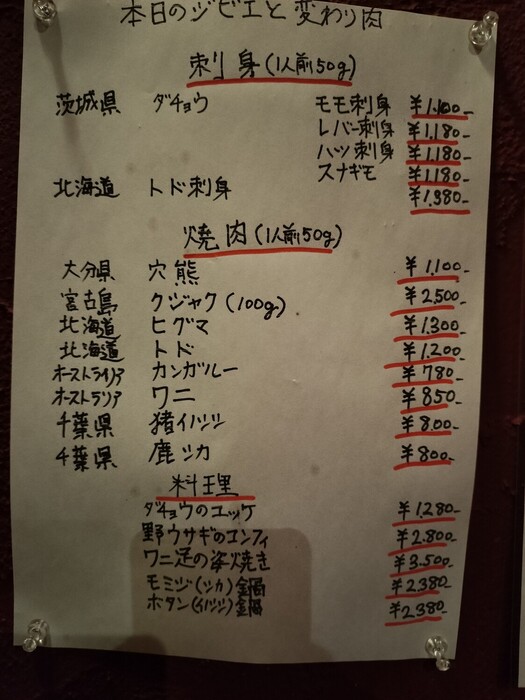 本日のジビエと変わり肉
刺身(1人前50g)
茨城県 ダチョウ モモ刺身 ¥1.100-
レバー刺身 ¥1,180-
ハツ刺身 ¥1,180-
スナギモ ¥1,180-
北海道 トド刺身 ¥1,980-
焼肉(1人前50g)
大分県 穴熊 ¥1,100-
宮古島 クジャク(100g) ¥2,500-
北海道 ヒグマ ¥1,300-
北海道 トド ¥1,200-
オーストライリア カンガルー ¥780-
オーストラリア ワニ ¥850-
千葉県 猪イノシシ ¥800-
千葉県 鹿シカ ¥800-
料理
ダチョウのユッケ ¥1,280-
野ウサギのコンフィ ¥2.800-
ワニ足の姿焼き ¥3,500-
モミジ(シカ)鍋 ¥2380-
ボタン(イノシシ)鍋 ¥2380-